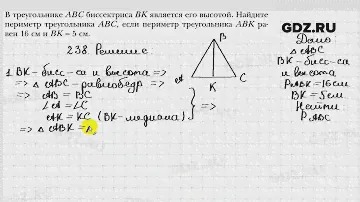 В треугольнике ABC биссектриса BK является его высотой. Найдите
периметр треугольника ABC, если периметр треугольника ABK ра-
вен 16 см и BK = 5 см.
GDZ.RU
238. Решение
1. BK - бисс-са и высота =>
=> △ ABC - равнобедр =>
=> AB = BC
∠A = ∠C
AK = KC (BK - медиана) } =>
=> △ ABK = △
B
A
K
C
Дано:
△ ABC
BK - бисс-са
и высота
P ABK = 16 см
BK = 5 см
Найти
P ABC